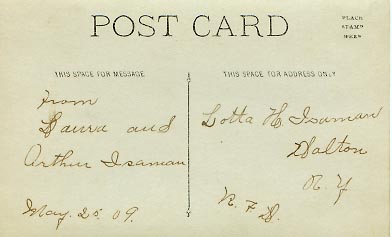 POST CARD
PLACE
STAMP
HERE
THIS SPACE FOR MESSAGE
THIS SPACE FOR ADDRESS ONLY
From
Laura and
Arthur Isaman
May. 25 09.
Lotta H Isaman
Dalton
N. Y
R. F. D.